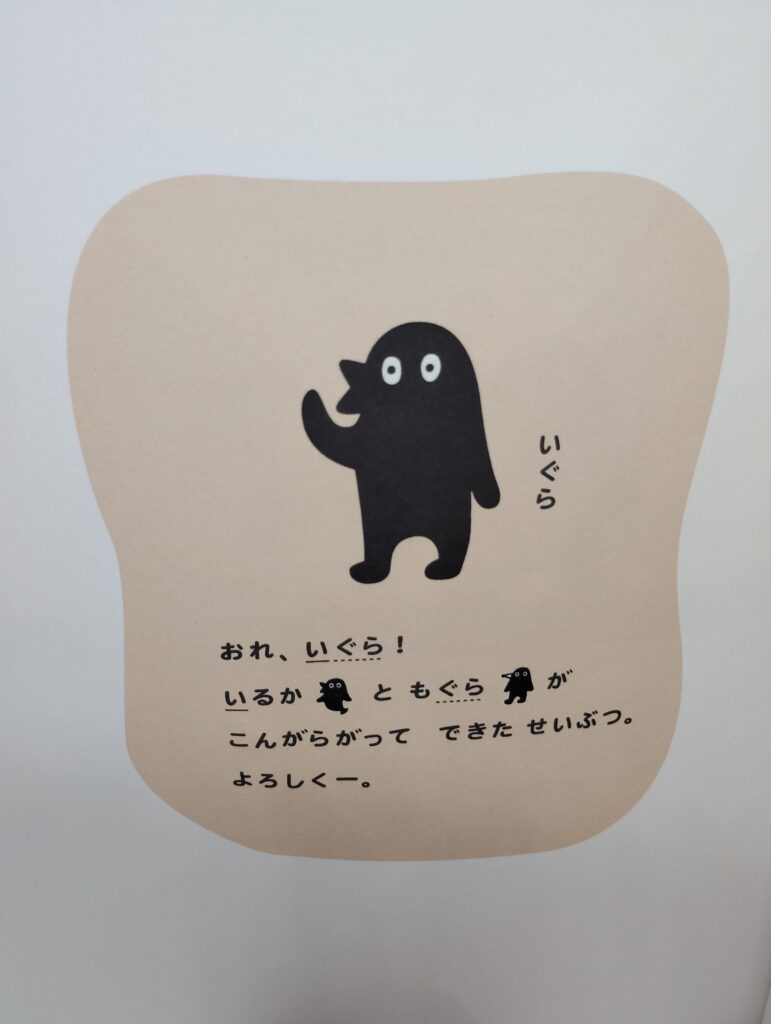 いぐら
おれ、いぐら！
いるか と もぐら が
こんがらがって できた せいぶつ。
よろしくー。